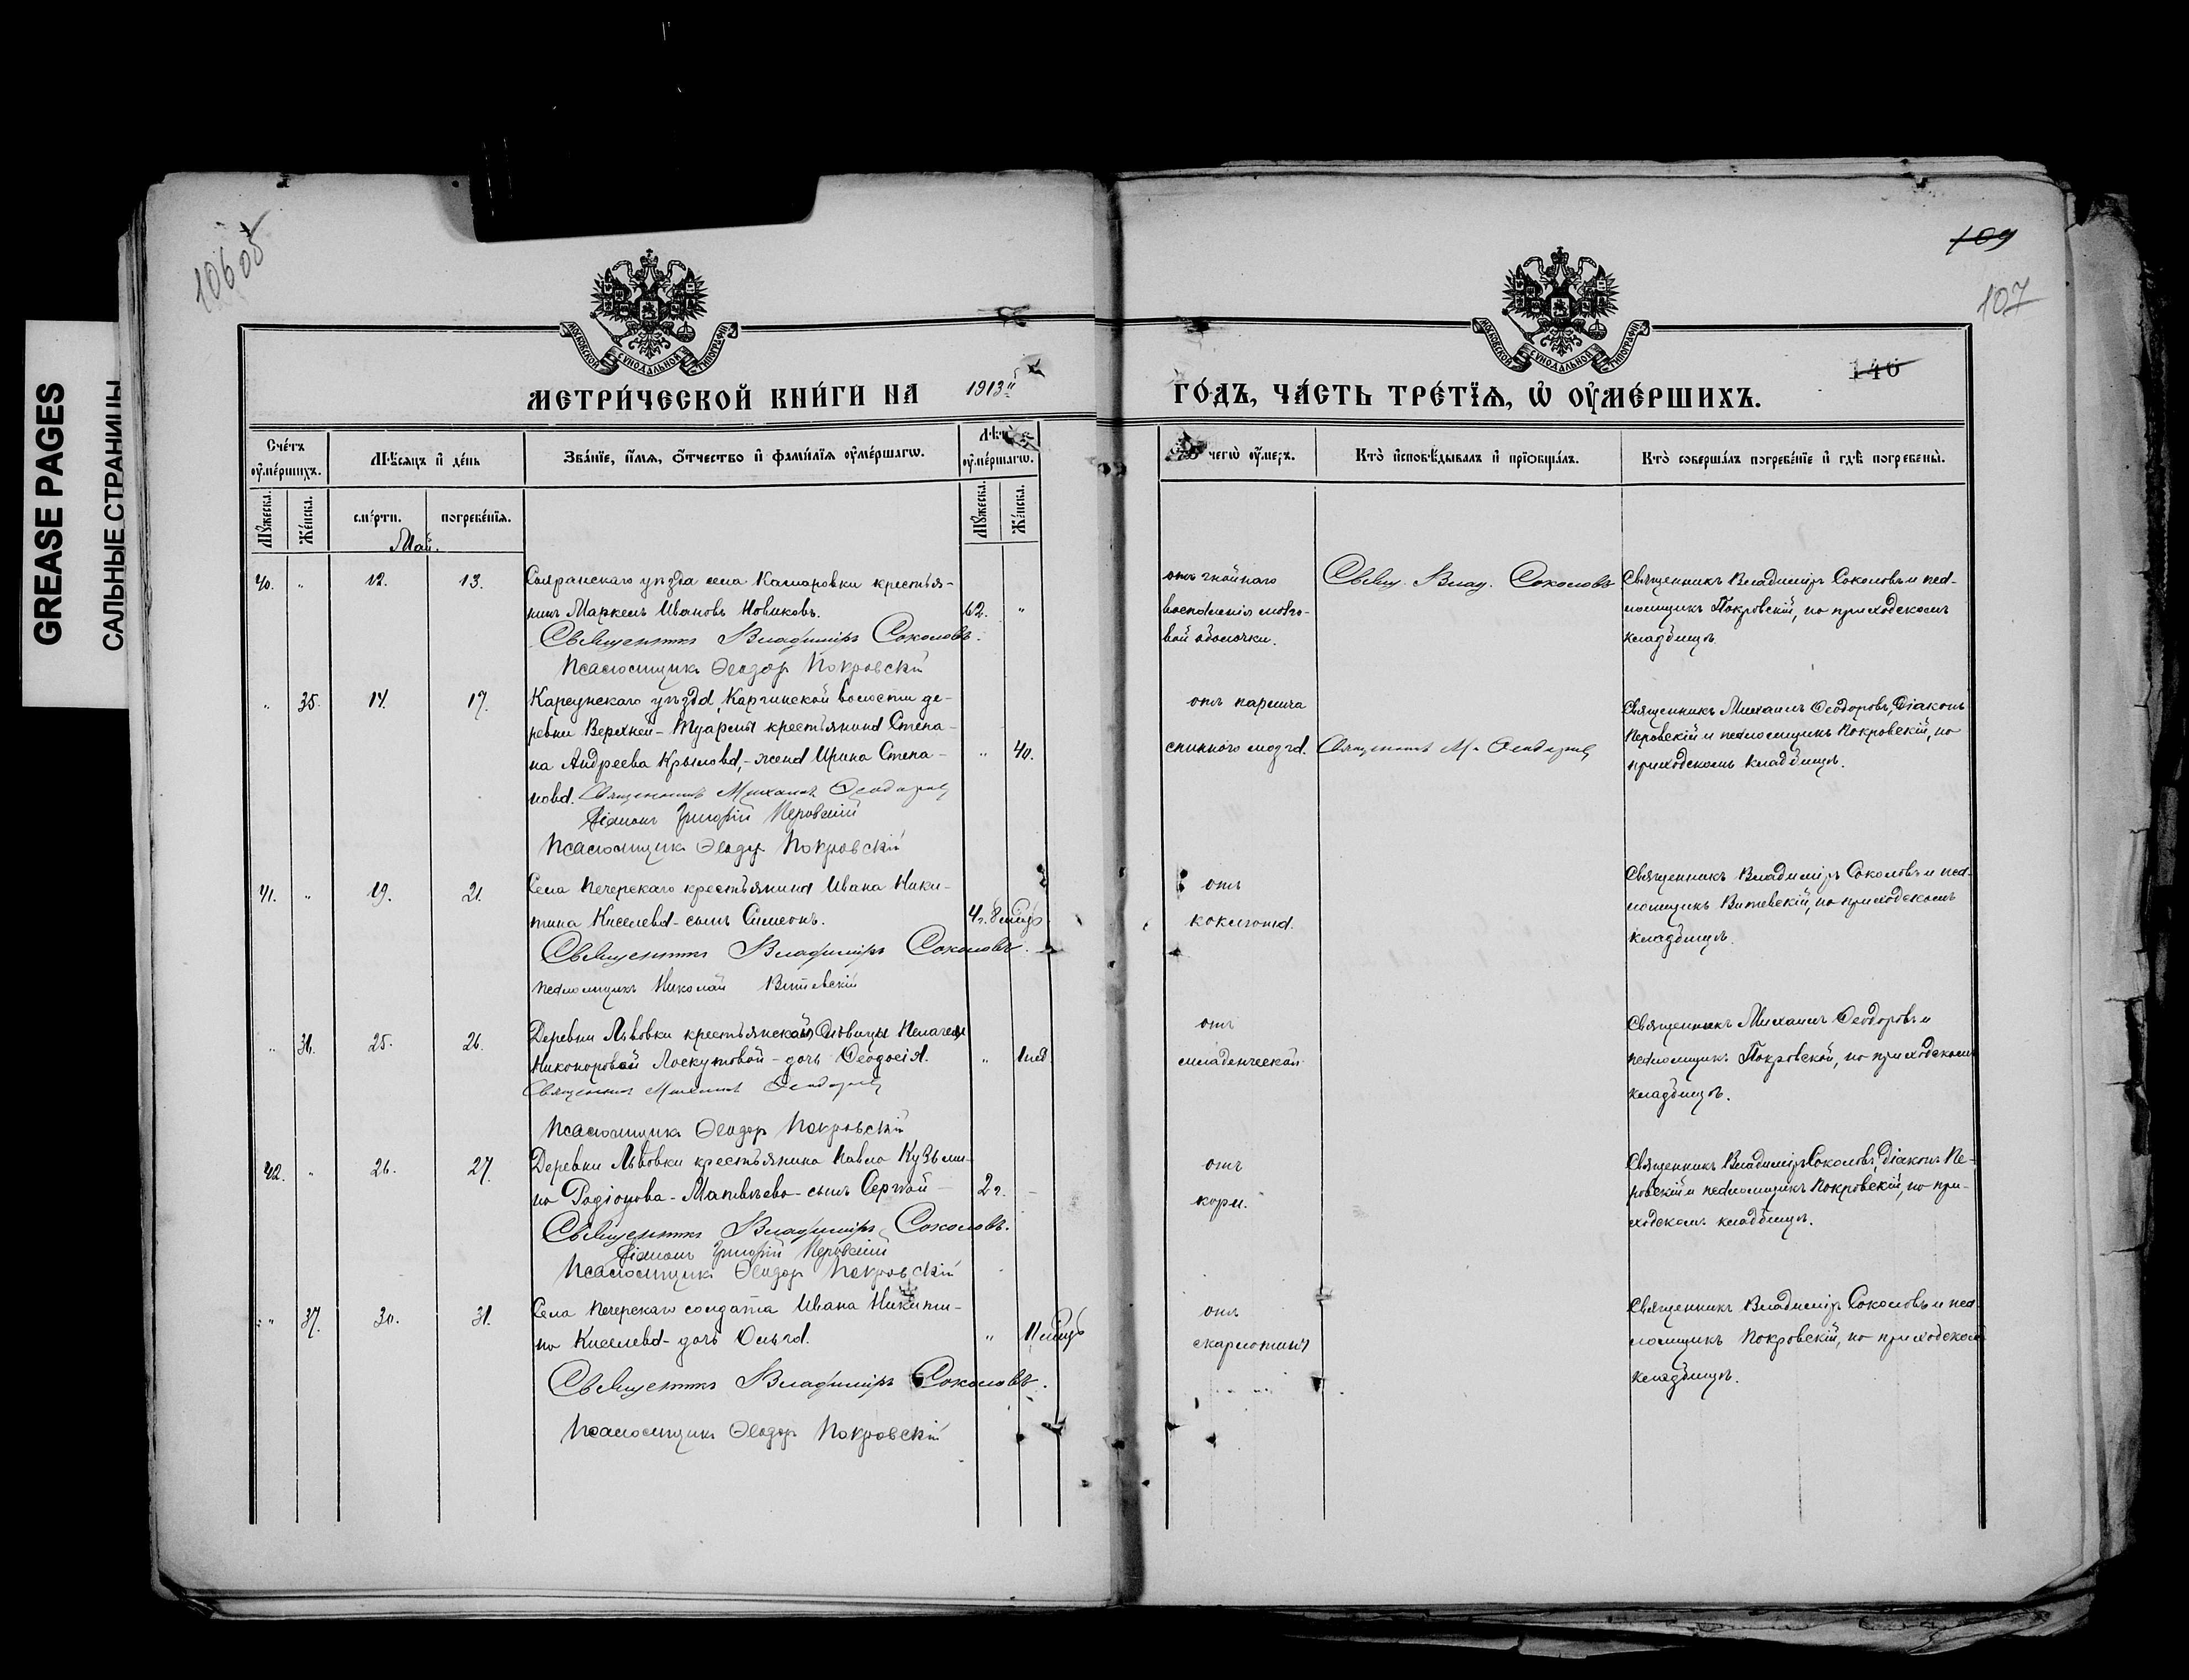 GREASE PAGES
САЛЬНЫЕ СТРАНИЦЫ
106об
109
107
140
МОСКОВСКОЙ СѴНОДАЛЬНОЙ ТИПОГРАФІИ
МОСКОВСКОЙ СѴНОДАЛЬНОЙ ТИПОГРАФІИ
МЕТРИ́ЧЕСКОЙ КНИ́ГИ НА 1913й ГО́ДЪ, ЧА́СТЬ ТРЕ́ТЇѦ, Ѡ҆ ОУ҆МЕ́РШИХЪ.
Сче́тъ оу҆ме́ршихъ.
Мѣ́сѧцъ и҆ де́нь
Зва́нїе, и҆́мѧ, ѻ҆́тчество и҆ фами́лїѧ оу҆ме́ршагѡ.
Лѣ́та оу҆ме́ршагѡ.
чегѡ̀ оу҆́меръ.
Кто̀ и҆сповѣ́дывалъ и҆ прїѡбща́лъ.
Кто̀ соверша́лъ погребе́нїе и҆ гдѣ̀ погребены̀.
Мꙋ́жеска. Же́нска. сме́рти. погребе́нїѧ. Мꙋ́жеска. Же́нска.
Май.
40. " 12. 13. Сызранскаго уѣзда села Кашировки крестья-
нинъ Маркелъ Ивановъ Новиковъ. 62. "
Священникъ Владиміръ Соколовъ.
Псаломщикъ Ѳеодоръ Покровскій
отъ гнойнаго
воспаленія мозго-
вой оболочки.
Свящ. Влад. Соколовъ
Священникъ Владиміръ Соколовъ и пса-
ломщикъ Покровскій, на приходскомъ
кладбищѣ.
" 35. 14. 17. Карсунскаго уѣзда, Каргинской волости де-
ревни Верхней-Туармы крестьянина Степа-
на Андреева Крылова,-жена Ирина Степа- " 40.
нова. Священникъ Михаилъ Ѳеодоровъ
Діаконъ Григорій Перовскій
Псаломщикъ Ѳеодоръ Покровскій
отъ паралича
спинного мозга. Священникъ М. Ѳеодоровъ
Священникъ Михаилъ Ѳеодоровъ, Діаконъ
Перовскій и псаломщикъ Покровскій, на
приходскомъ кладбищѣ.
41. " 19. 21. Села Печерскаго крестьянина Ивана Ники-
тина Киселева-сынъ Симеонъ. 4г. 8 мѣсц.
Священникъ Владиміръ Соколовъ.
Псаломщикъ Николай Витевскій
отъ
коклюша.
Священникъ Владиміръ Соколовъ и пса-
ломщикъ Витевскій, на приходскомъ
кладбищѣ.
" 36. 25. 26. Деревни Львовки крестьянской дѣвицы Пелагеи
Никоноровой Лоскутовой-дочь Ѳеодосія. " 1 нед.
Священникъ Михаилъ Ѳеодоровъ
Псаломщикъ Ѳеодоръ Покровскій
отъ
младенческой
Священникъ Михаилъ Ѳеодоровъ и
псаломщикъ Покровской, на приходскомъ
кладбищѣ.
42. " 26. 27. Деревни Львовки крестьянина Павла Кузьми-
на Родіонова-Матвѣева-сынъ Сергѣй 2г.
Священникъ Владиміръ Соколовъ.
Діаконъ Григорій Перовскій
Псаломщикъ Ѳеодоръ Покровскій
отъ
кори.
Священникъ Владиміръ Соколовъ, Діаконъ Пе-
ровскій и псаломщикъ Покровскій, на при-
ходскомъ кладбищѣ.
" 37. 30. 31. Села Печерскаго солдата Ивана Никити-
на Киселева-дочь Ольга. " 11 мѣсц.
Священникъ Владиміръ Соколовъ.
Псаломщикъ Ѳеодоръ Покровскій
отъ
скарлатины
Священникъ Владиміръ Соколовъ и пса-
ломщикъ Покровскій, на приходскомъ
кладбищѣ.